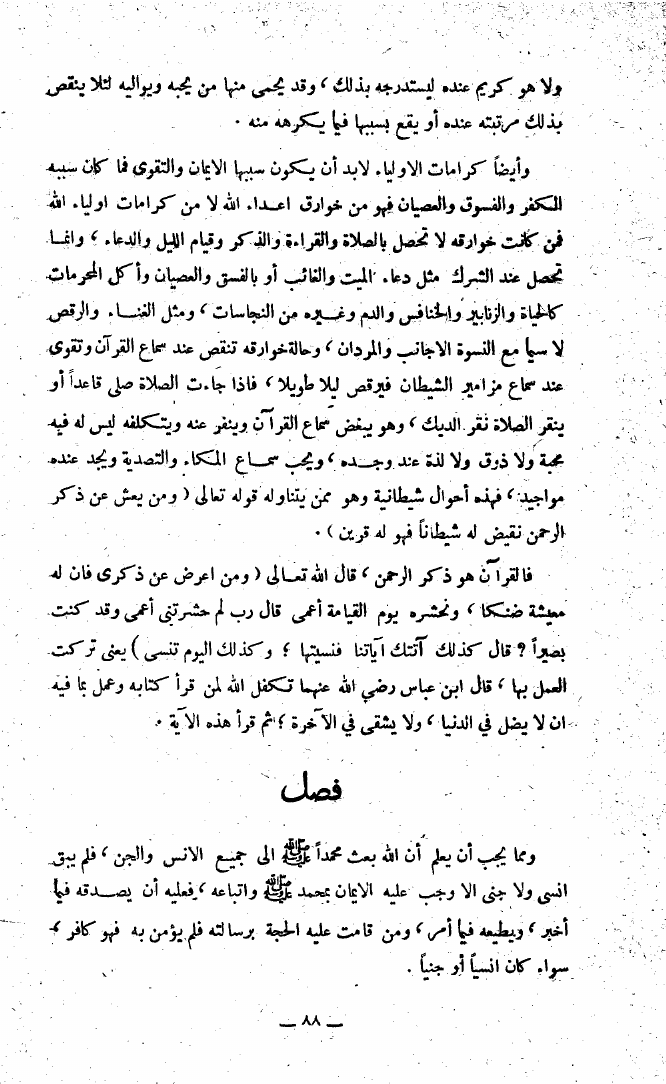 ولا هو كريم عنده ليستدرجه بذلك ، وقد يحمى منها من يحبه ويواليه لئلا ينقص
بذلك مرتبته عنده أو يقع بسببها فيما يكرهه منه .
وأيضاً كرامات الاولياء لابد أن يكون سببها الايمان والتقوى فما كان سببه
الكفر والفسوق والعصيان فهو من خوارق اعداء الله لا من كرامات اولياء الله
فمن كانت خوارقه لا تحصل بالصلاة والقراءة والذكر وقيام الليل والدعاء ، وانما
تحصل عند الشرك مثل دعاء الميت والغائب أو بالفسق والعصيان وأكل المحرمات
كالحياة والزنابير والخنافس والدم وغيره من النجاسات ، ومثل الغناء والرقص
لا سيما مع النسوة الاجانب والمردان ، وحالة خوارقه تنقص عند سماع القرآن وتقوى
عند سماع مزامير الشيطان فيرقص ليلا طويلا ، فاذا جاءت الصلاة صلى قاعداً أو
ينقر الصلاة نقر الديك ، وهو يبغض سماع القرآن وينفر عنه ويتكلفه ليس له فيه
محبة ولا ذوق ولا لذة عند وجده ، ويحب سماع المكاء والتصدية ويجد عنده
مواجيد ، فهذه أحوال شيطانية وهو ممن يتناوله قوله تعالى ( ومن يعش عن ذكر
الرحمن نقيض له شيطاناً فهو له قرين ) .
فالقرآن هو ذكر الرحمن ، قال الله تعالى ( ومن اعرض عن ذكرى فان له
معيشة ضنكا ، ونحشره يوم القيامة أعمى قال رب لم حشرتني أعمى وقد كنت
بصيراً ؟ قال كذلك آتتك آياتنا فنسيتها ؛ وكذلك اليوم تنسى ) يعنى تركت
العمل بها ، قال ابن عباس رضي الله عنهما تكفل الله لمن قرأ كتابه وعمل بما فيه
ان لا يضل في الدنيا ، ولا يشقى في الآخرة ؛ ثم قرأ هذه الآية .
فصل
ومما يجب أن يعلم أن الله بعث محمداً ﷺ الى جميع الانس والجن ، فلم يبق
انسى ولا جنى الا وجب عليه الايمان بمحمد ﷺ واتباعه ، فعليه أن يصدقه فيما
أخبر ، ويطيعه فيما أمر ، ومن قامت عليه الحجة برسالته فلم يؤمن به فهو كافر ،
سواء كان انسياً أو جنياً .
— ٨٨ —